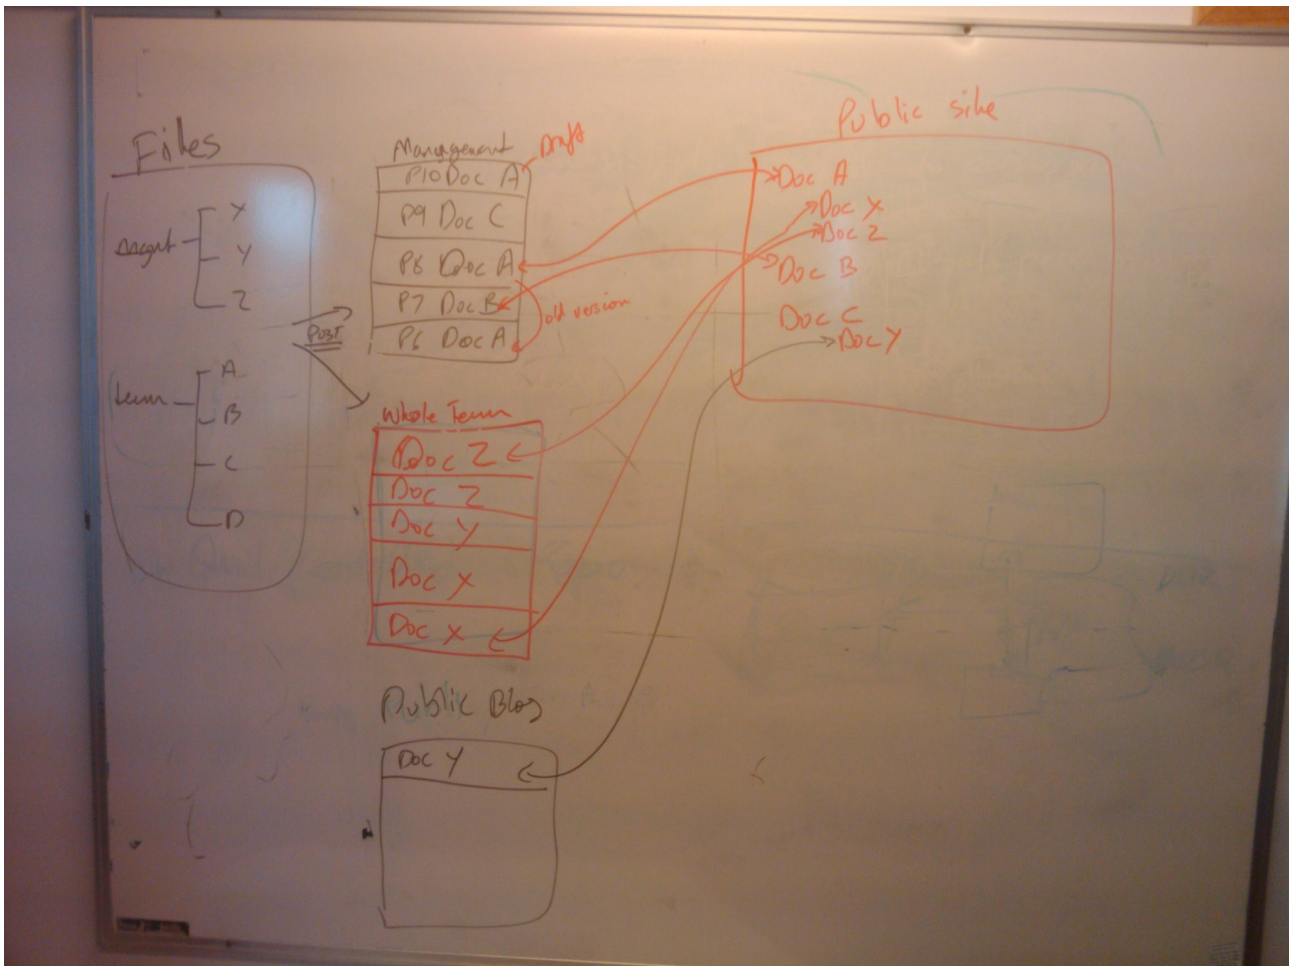 Files
Mngmt
X
Y
Z
team
A
B
C
D
POST
Management
Draft
P10 Doc A
P9 Doc C
P8 Doc A
P7 Doc B
P6 Doc A
old version
Whole Team
Doc Z
Doc Z
Doc Y
Doc X
Doc X
Public Blog
Doc Y
Public site
Doc A
Doc X
Doc Z
Doc B
Doc C
Doc Y